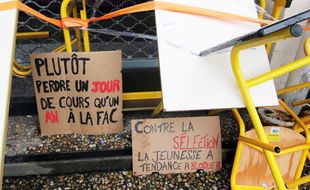 PLUTÔT
PERDRE UN JOUR
DE COURS QU'UN
AN À LA FAC
CONTRE LA
SÉLECTION
LA JEUNESSE A
TENDANCE A BLOQUER